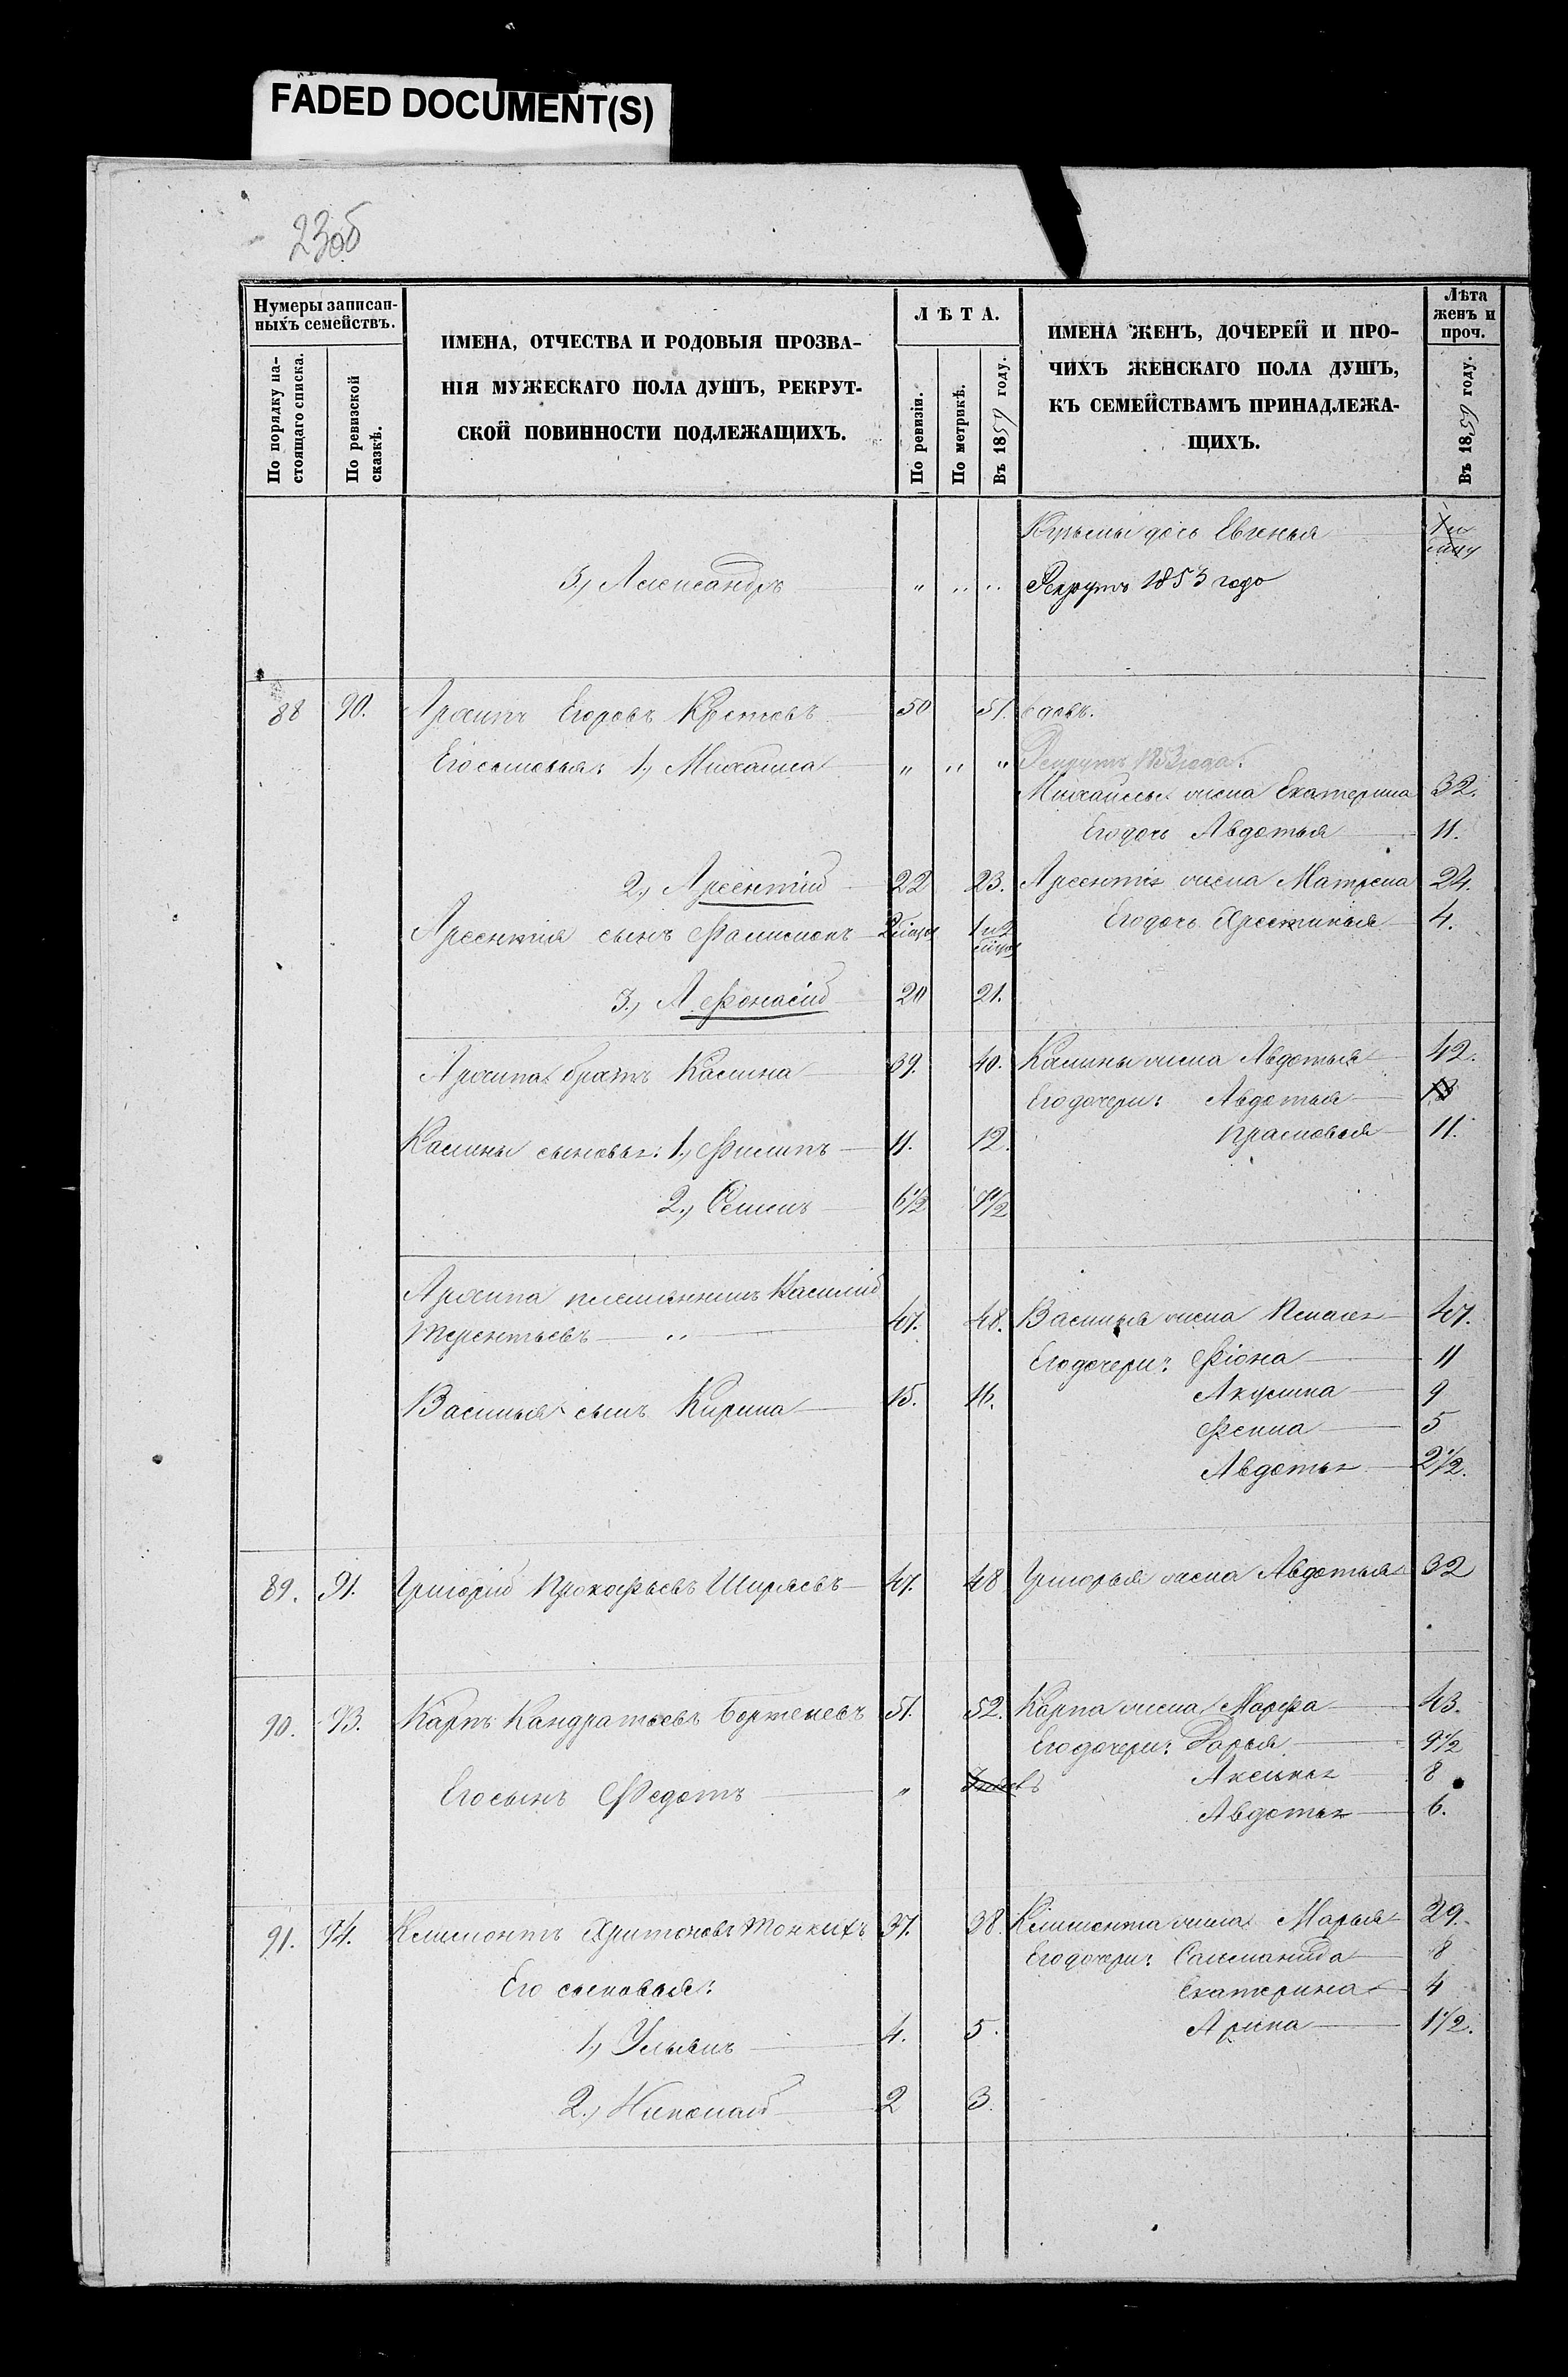 FADED DOCUMENT(S)
23об
Нумеры записан-
ныхъ семействъ.
По порядку на-
стоящаго списка.
По ревизской
сказкѣ.
ИМЕНА, ОТЧЕСТВА И РОДОВЫЯ ПРОЗВА-
НІЯ МУЖЕСКАГО ПОЛА ДУШЪ, РЕКРУТ-
СКОЙ ПОВИННОСТИ ПОДЛЕЖАЩИХЪ.
ЛѢТА.
По ревизіи.
По метрикѣ.
Въ 1859 году.
ИМЕНА ЖЕНЪ, ДОЧЕРЕЙ И ПРО-
ЧИХЪ ЖЕНСКАГО ПОЛА ДУШЪ,
КЪ СЕМЕЙСТВАМЪ ПРИНАДЛЕЖА-
ЩИХЪ.
Лѣта
женъ и
проч.
Въ 1859 году.
дочь Евгенья
3, Александръ " " " Рекрутъ 1853 года
88 90. Архипъ Егоровъ 50 51. вдовъ.
Его сыновья: 1, Михаила " " " Рекрутъ 1853 года.
Михайлы жена Екатерина 32.
Его дочь Авдотья 11.
2, Арсентій 22 23. Арсентія жена Матрена 24.
Арсентія сынъ 1 и 2 Его дочь Хрестинья 4.
3, Афонасій 20 21.
Архипа братъ Калина 39. 40. Калины жена Авдотья 42.
Его дочери: Авдотья
Прасковья 11.
Калины сыновья: 1, Филипъ 11. 12.
2, Семенъ 6 1/2 7 1/2
Архипа племянникъ Василій
Терентьевъ " 47. 48. Василья жена 47.
Его дочери: Фіона 11
Василья сынъ Кирила 15. 16. Акулина 9
Фекла 5
Авдотья 2 1/2.
89. 91. Григорій Прокофьевъ Ширяевъ 47. 48 Григорья жена Авдотья 32
90. 93. Карпъ Кандратьевъ 51. 52. Карпа жена Марфа 43.
Его дочери: Дарья 9 1/2
Аксинья 8
Его сынъ Федотъ " Авдотья 6.
91. 94. Климонтъ Харитоновъ Тонкихъ 37. 38. Климонта жена Марья 29.
Его дочери: Саломанида 8
Его сыновья: Екатерина 4
1, Ульянъ 4. 5. Арина 1 1/2.
2, Николай 2 3.